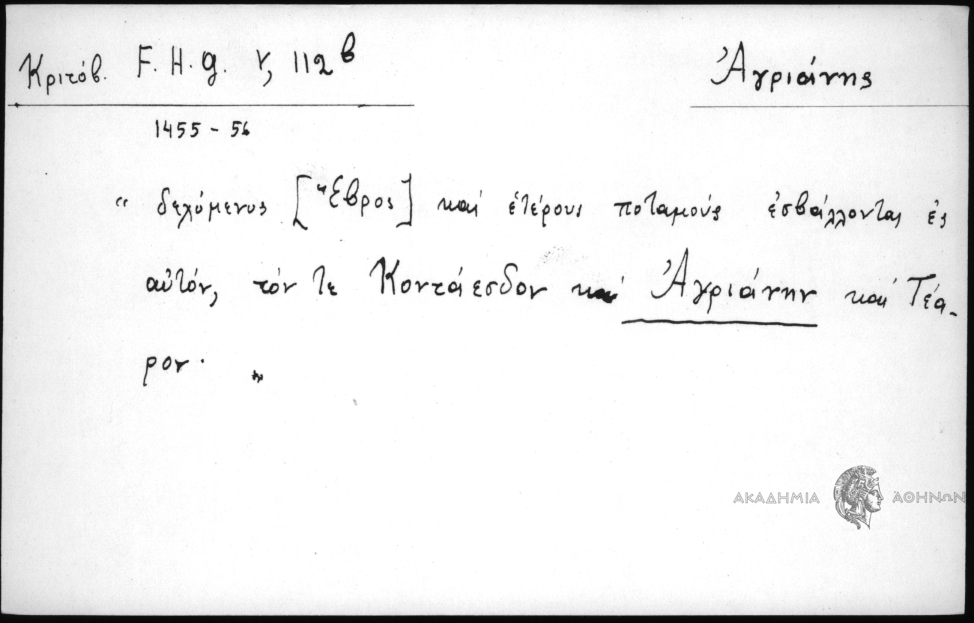 Κριτόβ. F. H. g. V, 112β
Ἀγριάνης
1455 - 56
“ δεχόμενος [Ἕβρος] καὶ ἑτέρους ποταμούς ἐσβάλλοντας ἐς
αὐτόν, τόν τε Κοντάεσδον καὶ Ἀγριάνην καὶ Τέα-
ρον. „
ΑΚΑΔΗΜΙΑ ΑΘΗΝΩΝ